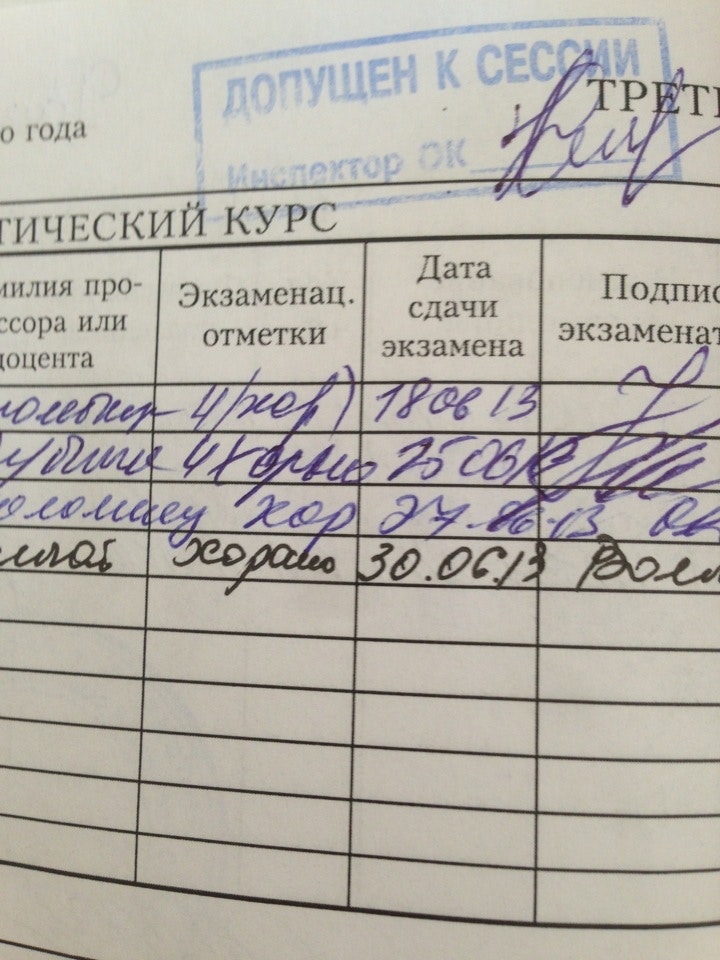 ДОПУЩЕН К СЕССИИ
ТРЕТИ
о года
Инспектор ОК
ТИЧЕСКИЙ КУРС
милия про-
ссора или
доцента
Экзаменац.
отметки
Дата
сдачи
экзамена
Подпис
экзаменат
4 (хор) 18 06 13
4 хорошо 25 06 13
хор 27.06.13
хорошо 30.06.13